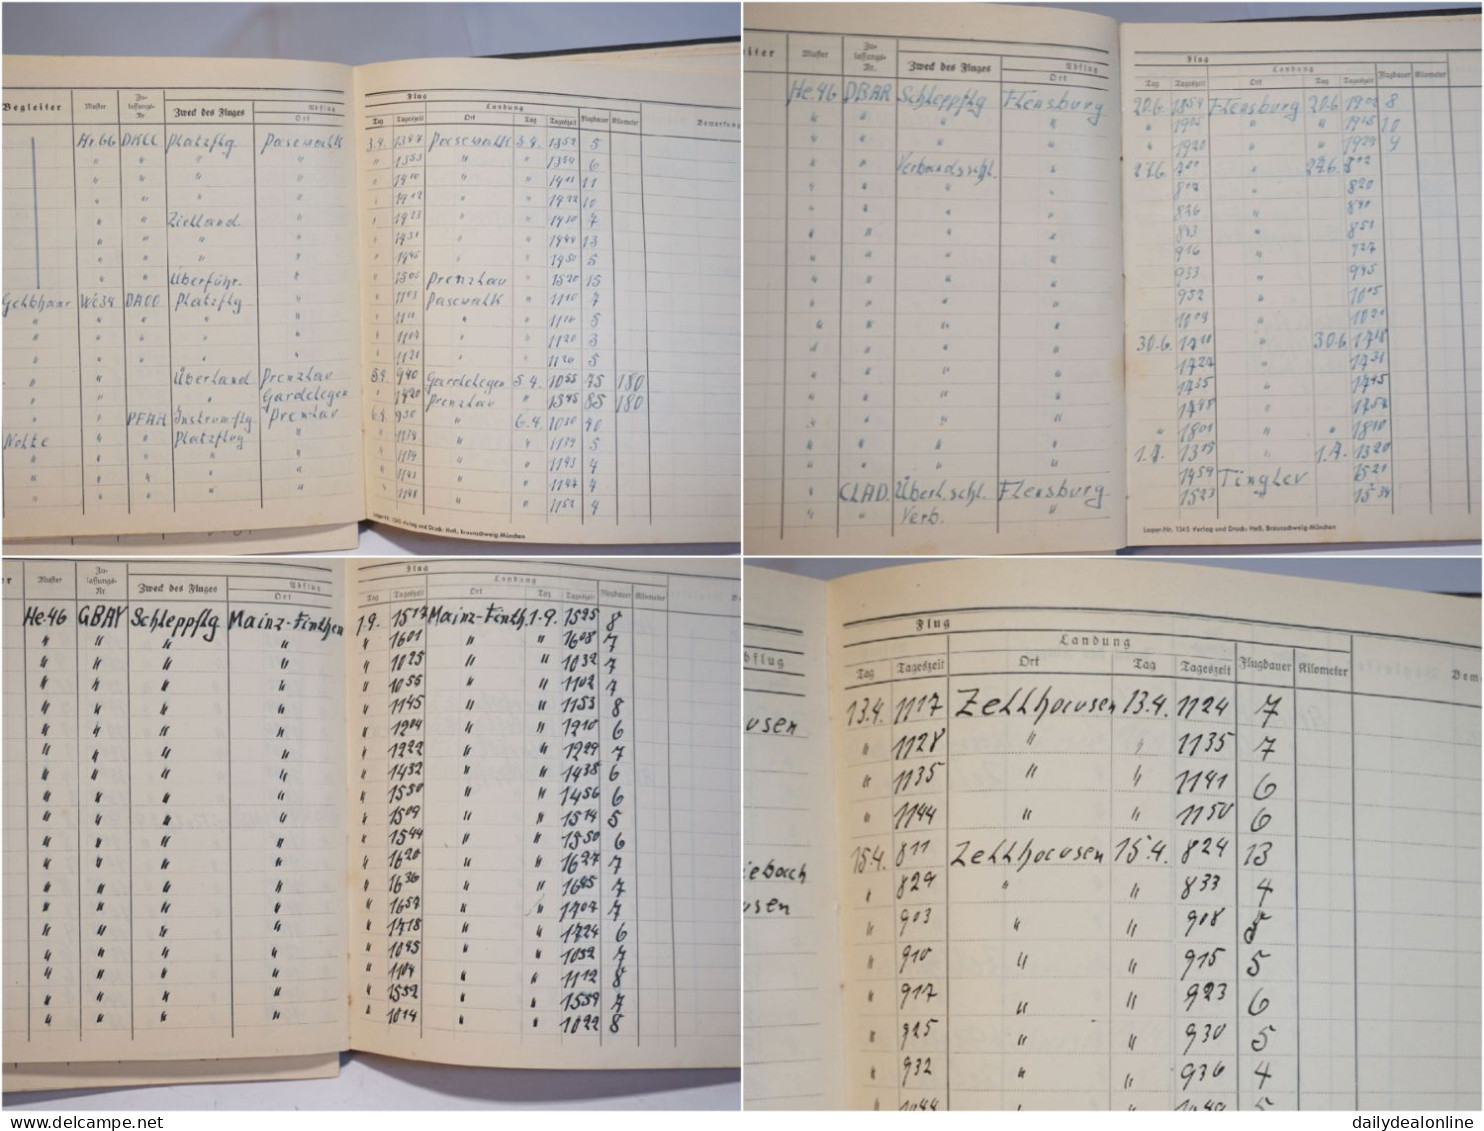 Flug
Abflug
Landung
Begleiter Muster Zu-lassungs-Nr. Zweck des Fluges Ort Tag Tageszeit Ort Tag Tageszeit Flugdauer Kilometer
DKCC Platzflg. Pasewalk 3.4. 1347 Pasewalk 3.4. 1352 5
" " " " " 1353 " " 1354 6
" " " " " 1410 " " 1411 11
" " " " " 1412 " " 1422 10
" " Zielland. " " 1423 " " 1430 7
" " " " " 1431 " " 1444 13
" " " " " 1445 " " 1450 5
" " Überführ. " " 1505 Prenzlau " 1520 15
We34 DAOO Platzflg " " 1103 Pasewalk " 1110 7
" " " " " " 1111 " " 1116 5
" " " " " " 1117 " " 1120 3
" " " " " " 1121 " " 1126 5
" " " Überland Prenzlau 5.4. 940 Gardelegen 5.4. 1055 75 180
" " " " Gardelegen " 1420 Prenzlau " 1545 85 180
" " Instrum.flg. Prenzlau 6.4. 950 " 6.4. 1030 40
Nolte " " Platzflug " " 1134 " " 1139 5
" " " " " " 1139 " " 1143 4
" " " " " " 1143 " " 1147 4
" " " " " " 1148 " " 1152 4
Lager-Nr. 1345 Verlag und Druck: Heß, Braunschweig-München
Flug
Abflug
Landung
Muster Zu-lassungs-Nr. Zweck des Fluges Ort Tag Tageszeit Ort Tag Tageszeit Flugdauer Kilometer
He.46 DBAR Schleppflg Flensburg 20.6. 1854 Flensburg 20.6. 1902 8
" " " " " 1905 " " 1915 10
" " " " " 1920 " " 1929 9
" " Verbandsschl. " 27.6. " 27.6. 812
" " " " 817 " 820
" " " " 836 " 840
" " " " 843 " 851
" " " " 916 " 927
" " " " 933 " 945
" " " " 952 " 1005
" " " " 1109 "
" " " " 30.6. 1710 " 30.6. 1718
" " " " 1724 " 1731
" " " " 1735 " 1745
" " " " 1748 " 1754
" " " " " 1801 " " 1810
" " " " 1.7. 1305 " 1.7. 1320
" " " " 1454 Tinglev 1521
CLAD. Überl.schl. Flensburg 1523 " 1534
" Verb. "
Lager-Nr. 1345 Verlag und Druck: Heß, Braunschweig-München
Flug
Abflug
Landung
Muster Zu-lassungs-Nr. Zweck des Fluges Ort Tag Tageszeit Ort Tag Tageszeit Flugdauer Kilometer
He.46 GBAY Schleppflg Mainz-Finthen 1.9. 1517 Mainz-Finth. 1.9. 1525 8
" " " " " 1601 " " 1608 7
" " " " " 1025 " " 1032 7
" " " " " 1055 " " 1102 7
" " " " " 1145 " " 1153 8
" " " " " 1204 " " 1210 6
" " " " " 1222 " " 1229 7
" " " " " 1432 " " 1438 6
" " " " " 1550 " " 1456 6
" " " " " 1509 " " 1514 5
" " " " " 1544 " " 1550 6
" " " " " 1620 " " 1627 7
" " " " " 1636 " " 1645 7
" " " " " 1657 " " 1707 7
" " " " " 1718 " " 1724 6
" " " " " 1045 " " 1052 7
" " " " " 1104 " " 1112 8
" " " " " 1552 " " 1559 7
" " " " " 1014 " " 1022 8
Flug
Landung
Tag Tageszeit Ort Tag Tageszeit Flugdauer Kilometer
13.4. 1117 Zellhausen 13.4. 1124 7
" 1128 " " 1135 7
" 1135 " " 1141 6
" 1144 " " 1150 6
15.4. 811 Zellhausen 15.4. 824 13
" 829 " " 833 4
" 903 " " 908 5
" 910 " " 915 5
" 917 " " 923 6
" 925 " " 930 5
" 932 " " 936 4
dailydealonline